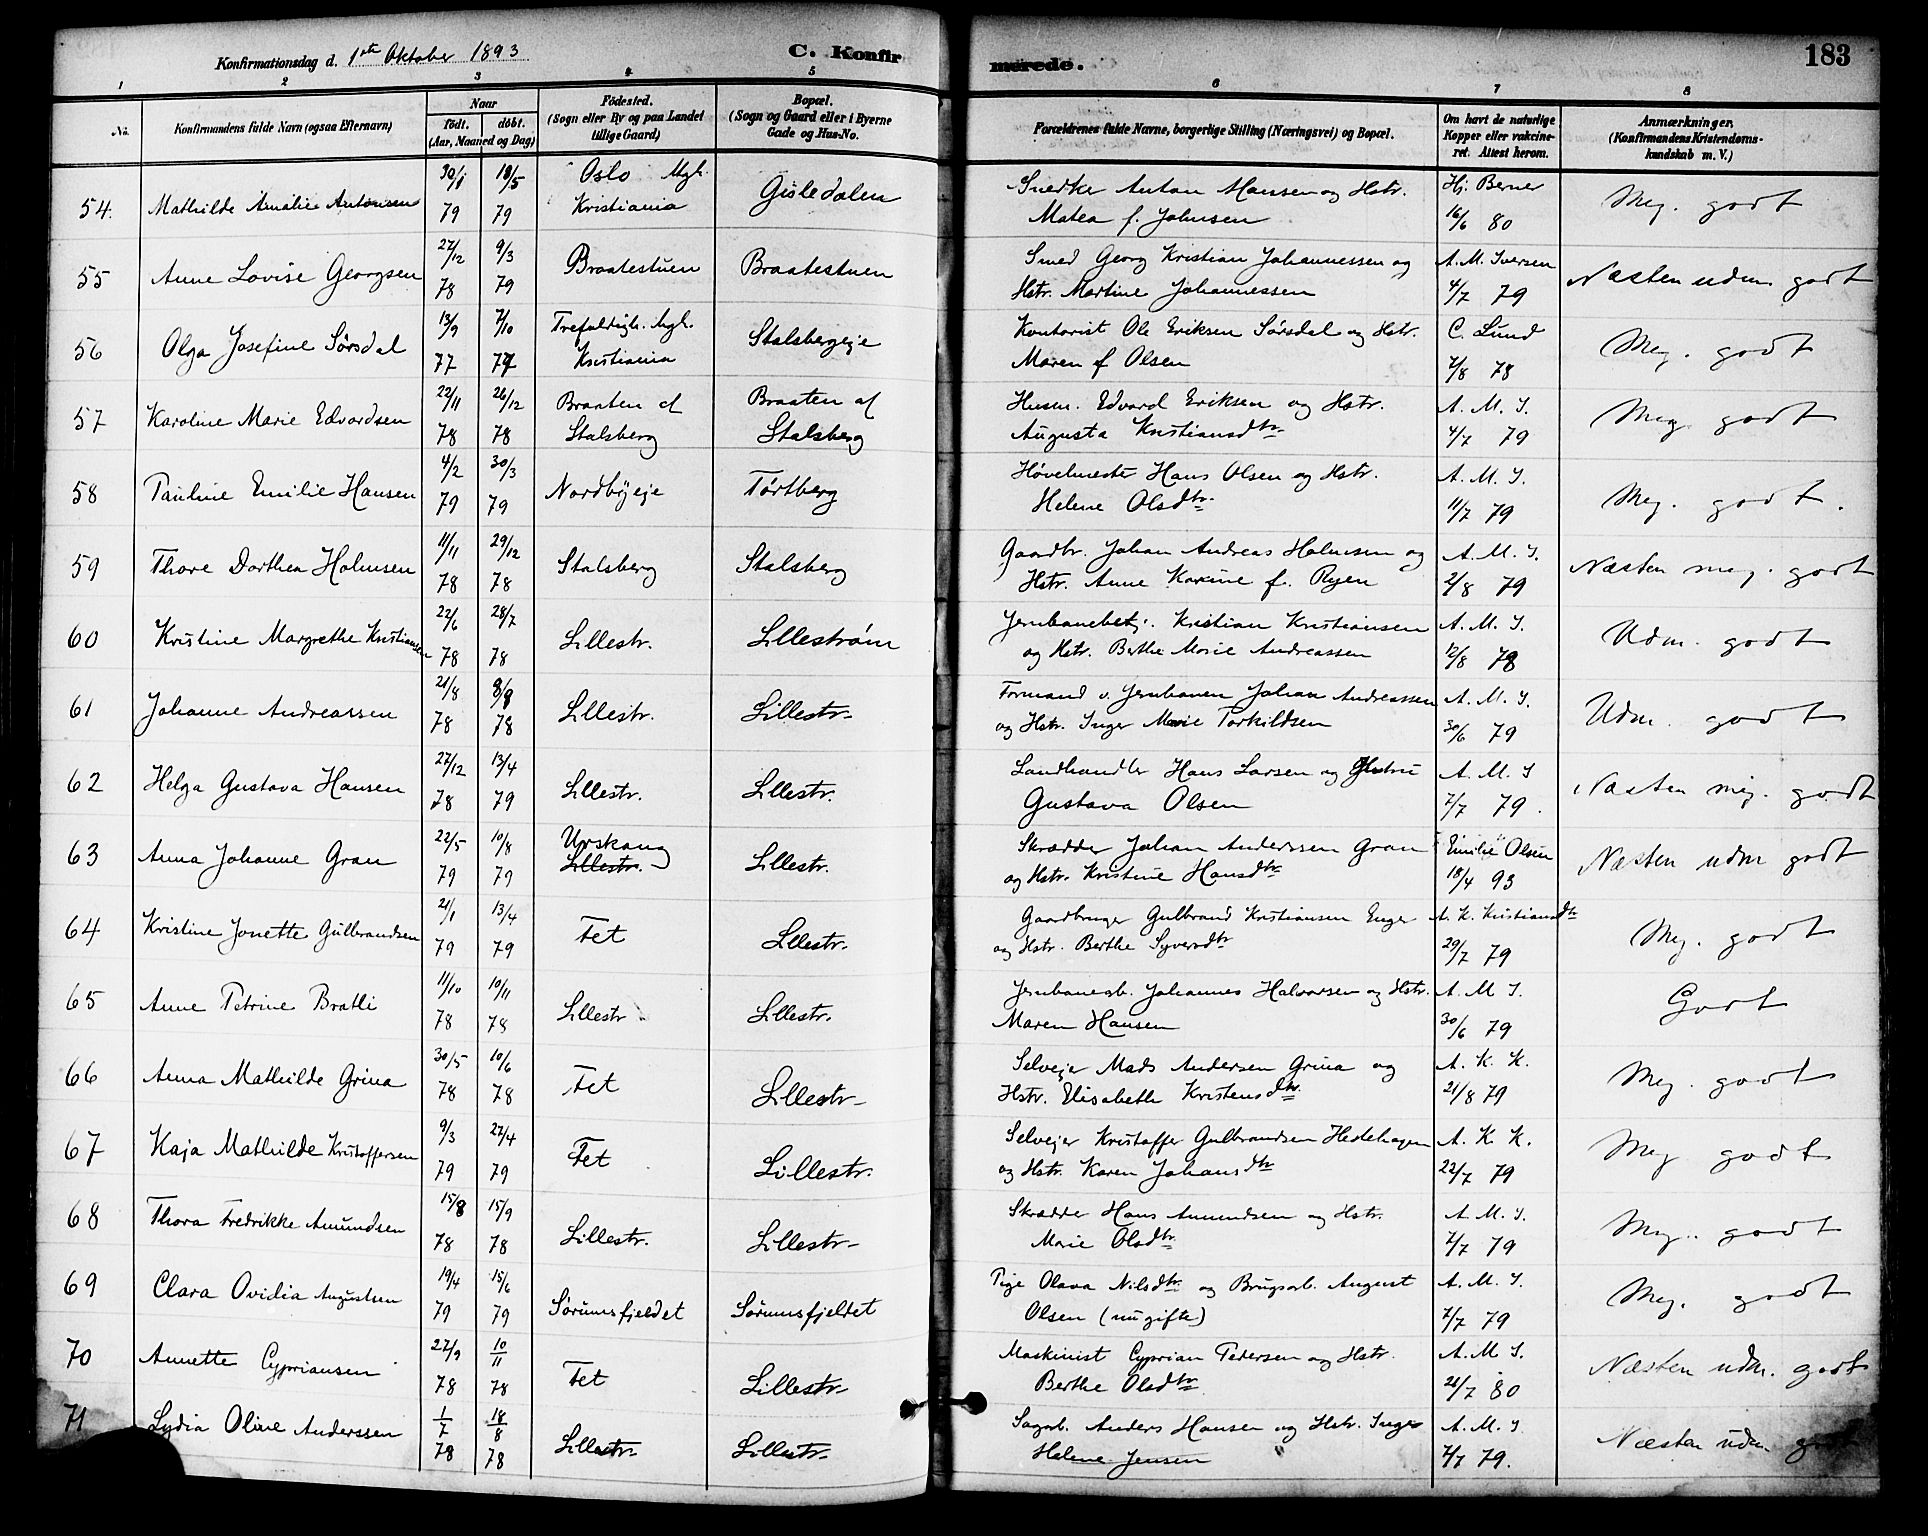 Konfirmationsdag d. 1ste Oktober 1893
C. Konfir
merede.
183
1 2 3 4 5 6 7 8
No. Konfirmandens fulde Navn (ogsaa Efternavn) Naar født. døbt. (Aar, Maaned og Dag) Fødested. (Sogn eller By og paa Landet tillige Gaard) Bopæl. (Sogn og Gaard eller i Byerne Gade og Hus-No. Forældrenes fulde Navne, borgerlige Stilling (Næringsvei) og Bopæl. Om havt de naturlige Kopper eller vakcineret. Attest herom. Anmærkninger, (Konfirmandens Kristendomskundskab m. V.)
54. Mathilde Amalie Antonsen 30/1 79 18/5 79 Oslo Mgh. Kristiania Gisledalen Snedker Anton Hansen og Hstr. Matea f. Johnsen Hj. Berner 16/6 80 Meg. godt
55 Anne Lovise Georgsen 27/12 78 9/3 79 Braatestuen Braatestuen Smed Georg Kristian Johannessen og Hstr. Martine Johannessen A. M. Iversen 4/7 79 Næsten udm. godt
56 Olga Josefine Sørsdal 13/9 77 7/10 77 Trefoldigh. Mgh. Kristiania Stalsbergeje Kontorist Ole Eriksen Sørsdal og Hstr. Maren f Olsen C. Lund 7/8 78 Meg. godt
57 Karoline Marie Edvardsen 22/11 78 26/12 78 Braaten af Stalsberg Braaten af Stalsberg Husm. Edvard Eriksen og Hstr. Augusta Kristiansdtr A. M. I. 4/7 79 Meg. godt
58 Pauline Emilie Hansen 4/2 79 30/3 79 Nordbyeje Tørtberg Høvelmester Hans Olsen og Hstr. Helene Olsdtr. A. M. I. 11/7 79 Meg. godt.
59 Thore Dorthea Holmsen 11/11 78 29/12 78 Stalsberg Stalsberg Gaardbr. Johan Andreas Holmsen og Hstr. Anne Karine f. Ryen A. M. I. 2/8 79 Næsten meg. godt
60 Kristine Margrethe Kristiansen 22/6 78 28/7 78 Lillestr. Lillestrøm Jernbanebetj. Kristian Kristiansen og Hstr. Berthe Marie Andreassen A. M. I. 12/8 78 Udm. godt
61 Johanne Andreassen 21/8 78 9/8 78 Lillestr. Lillestr. Formand v. Jernbanen Johan Andreassen og Hstr. Inger Marie Torkildsen A. M. I. 30/6 79 Udm. godt
62 Helga Gustava Hansen 27/12 78 13/4 79 Lillestr. Lillestr. Landhandler Hans Larsen og Hustru Gustava Olsen A. M. I 7/7 79. Næsten meg. godt
63 Anna Johanne Gran 22/5 79 10/8 79 Urskoug Lillestr. Lillestr. Skrædder Johan Anderssen Gran og Hstr. Kristine Hansdtr. Emilie Olsen 18/4 93 Næsten udm godt
64 Kristine Jonette Gulbrandsen 21/1 79 13/4 79 Fet Lillestr. Gaardbruger Gulbrand Kristiansen Enger og Hstr. Berthe Syversdtr A. K. Kristiansdtr 29/7 79 Meg. godt
65 Anne Petrine Bratli 11/10 78 10/11 78 Lillestr Lillestr. Jernbanearb. Johannes Halvorsen og Hstr. Maren Hansen A. M I. 30/6 79 Godt
66 Anna Mathilde Grina 30/5 78 10/6 78 Fet Lillestr. Selvejer Mads Andersen Grina og Hstr. Elisabeth Kristensdtr. A. K. K. 21/8 79 Meg. godt
67 Kaja Mathilde Kristoffersen 9/3 79 27/4 79 Fet Lillestr. Selvejer Kristoffer Gulbrandsen Hedehagen og Hstr. Karen Johansdtr A. K. K. 22/7 79 Meg godt
68 Thora Fredrikke Amundsen 15/8 78 15/9 78 Lillestr. Lillestr. Skrædder Hans Amundsen og Hstr. Marie Olsdtr. A. M. I. 7/7 79 Meg. godt
69 Clara Ovidia Augustsen 19/4 79 15/6 79 Sørumsfjeldet Sørumsfjeldet Pige Olava Nilsdtr. og Brugsarb. August Olsen (nu gifte) A. M. I. 7/7 79 Meg. godt
70 Annette Cypriansen 27/9 78 10/11 78 Fet Lillestr. Maskinist Cyprian Pedersen og Hstr. Berthe Olsdtr A. M I. 21/7 80 Næsten udm. godt
71 Lydia Oline Anderssen 1/7 78 18/8 78 Lillestr. Lillestr. Sagarb. Anders Hansen og Hstr. Inger Helene Jensen A. M. I 7/7 79. Næsten udm. godt